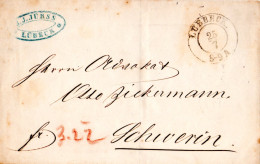 J. JÜRSS
LÜBECK
LUEBECK
25
7
5-6 A
Herrn Advokat
Otto Zickermann.
fr. 3.22 Schwerin.